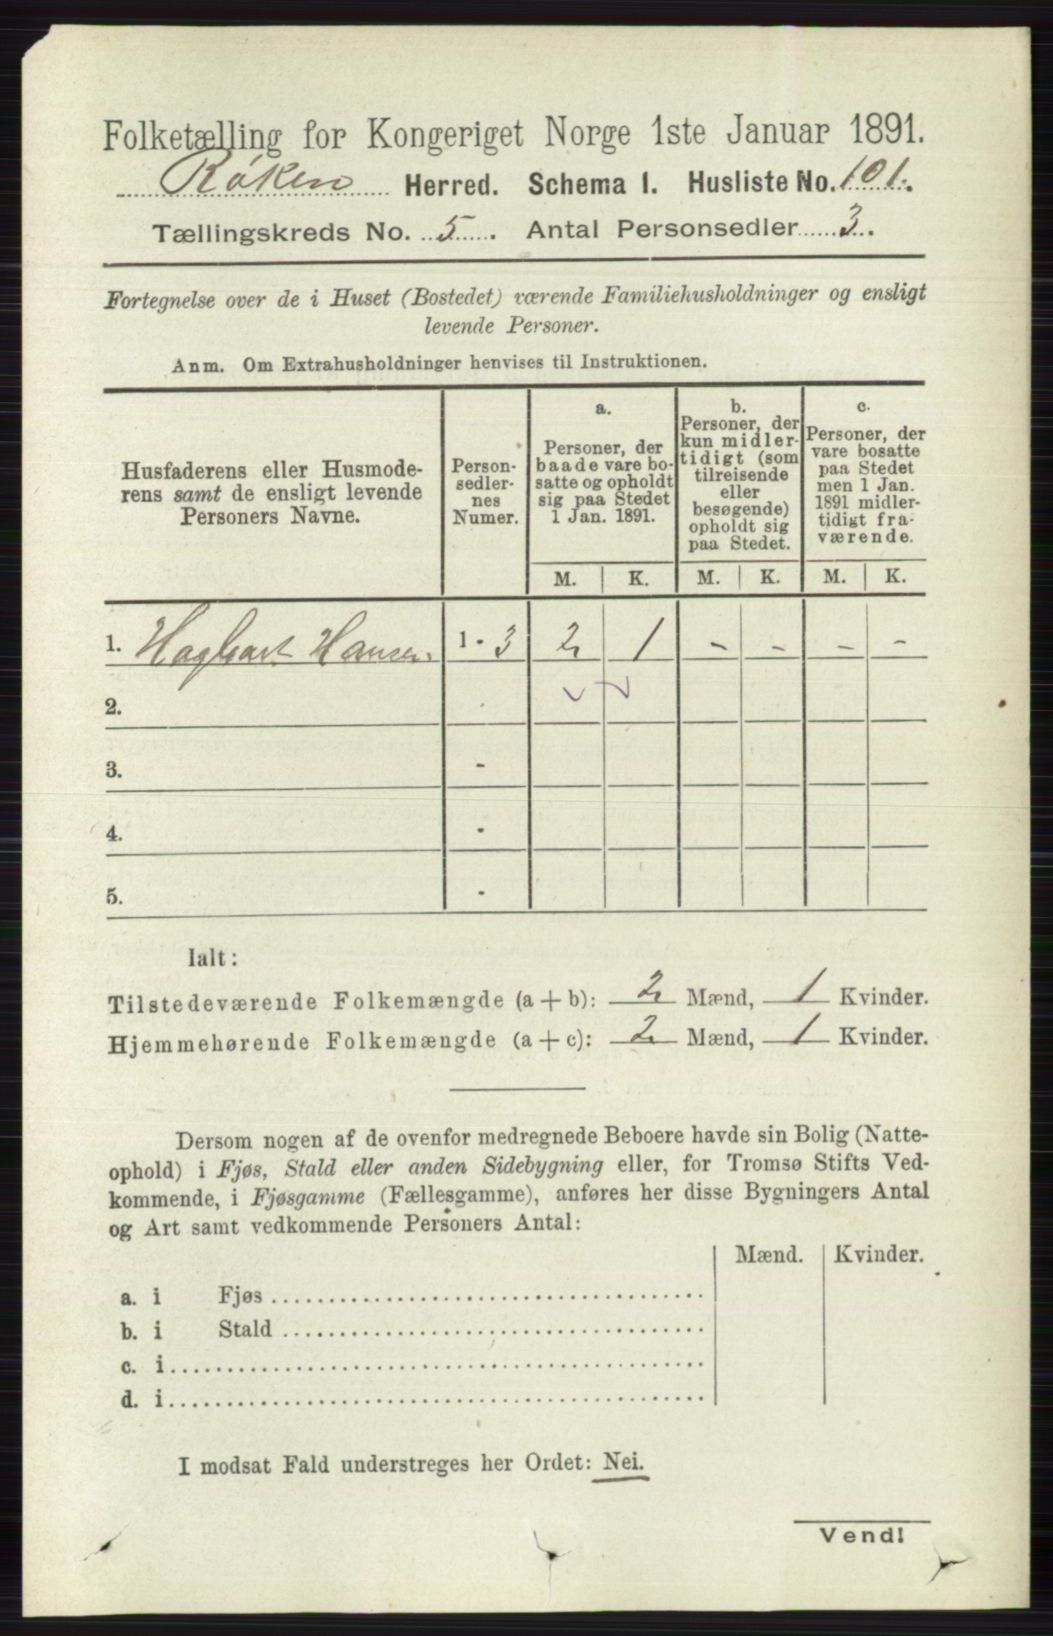 Folketælling for Kongeriget Norge 1ste Januar 1891.
Røken Herred. Schema I. Husliste No. 101.
Tællingskreds No. 5. Antal Personsedler 3.
Fortegnelse over de i Huset (Bostedet) værende Familiehusholdninger og ensligt
levende Personer.
Anm. Om Extrahusholdninger henvises til Instruktionen.
Husfaderens eller Husmode-
rens samt de ensligt levende
Personers Navne.
Person-
sedler-
nes
Numer.
a.
Personer, der
baade vare bo-
satte og opholdt
sig paa Stedet
1 Jan. 1891.
b.
Personer, der
kun midler-
tidigt (som
tilreisende
eller
besøgende)
opholdt sig
paa Stedet.
c.
Personer, der
vare bosatte
paa Stedet
men 1 Jan.
1891 midler-
tidigt fra-
værende.
M. K. M. K. M. K.
1. Hagbart Hansen. 1 - 3 2 1 - - - -
2. -
3. -
4. -
5. -
Ialt:
Tilstedeværende Folkemængde (a + b): 2 Mænd, 1 Kvinder.
Hjemmehørende Folkemængde (a + c): 2 Mænd, 1 Kvinder.
Dersom nogen af de ovenfor medregnede Beboere havde sin Bolig (Natte-
ophold) i Fjøs, Stald eller anden Sidebygning eller, for Tromsø Stifts Ved-
kommende, i Fjøsgamme (Fællesgamme), anføres her disse Bygningers Antal
og Art samt vedkommende Personers Antal:
Mænd. Kvinder.
a. i Fjøs
b. i Stald
c. i
d. i
I modsat Fald understreges her Ordet: Nei.
Vend!